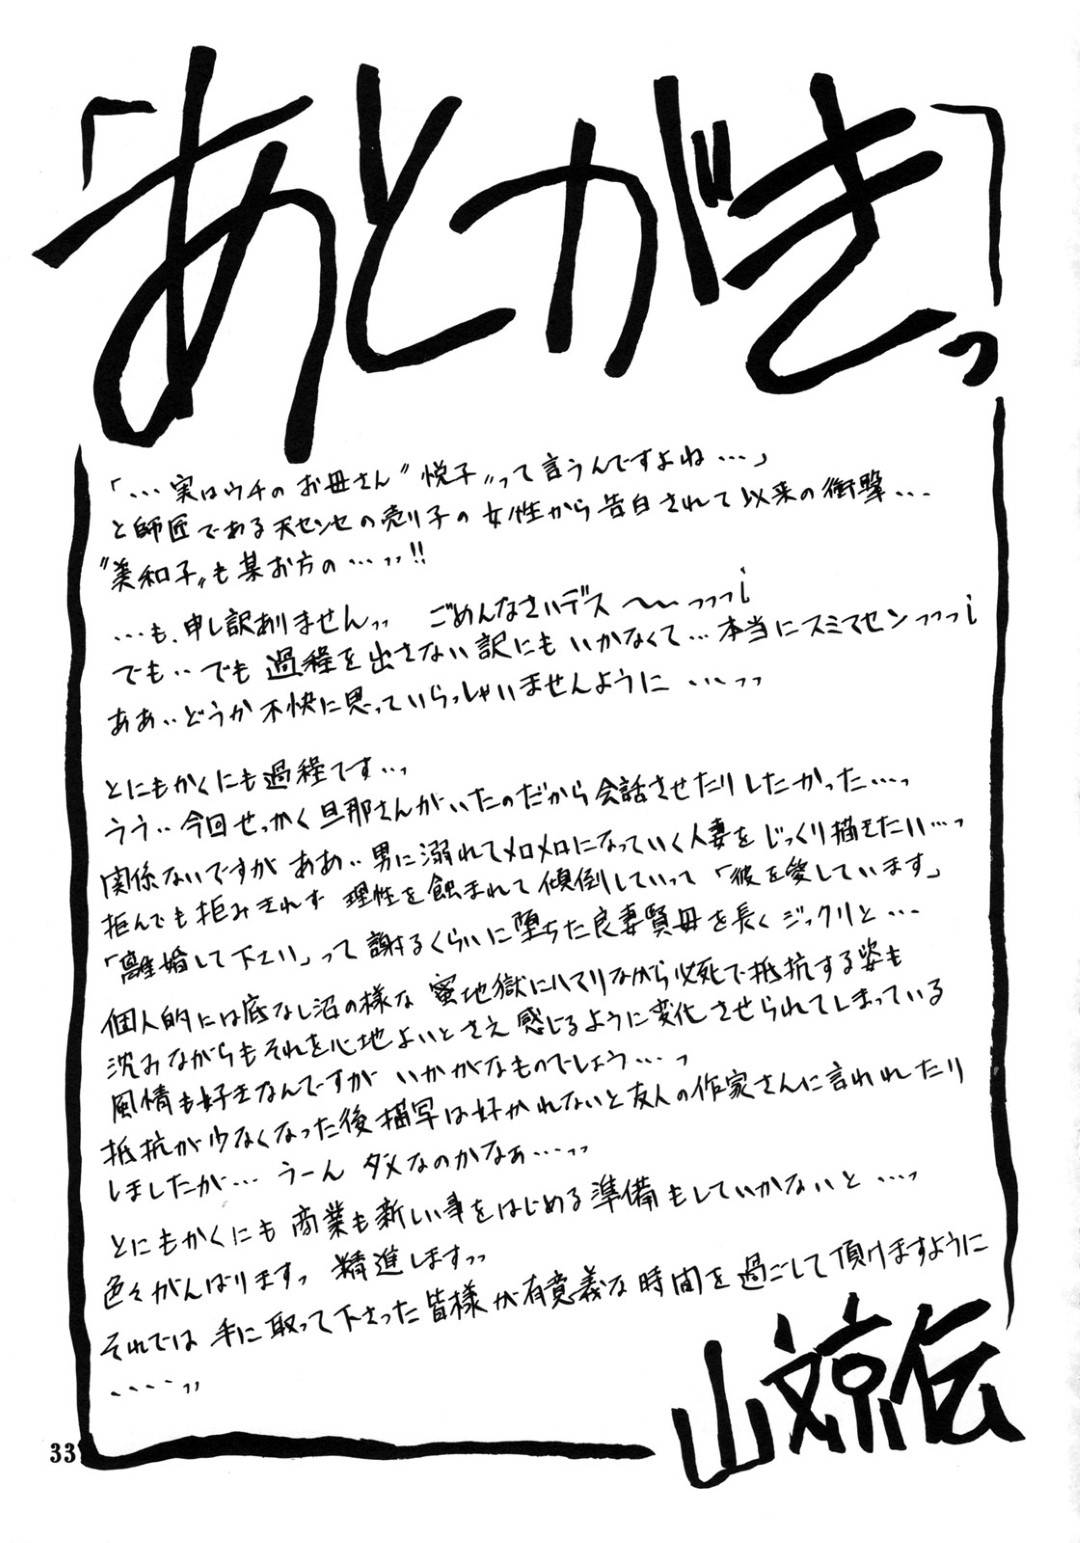 「あとがきっ」
「…実はウチのお母さん〝悦子〟って言うんですよね…」
と師匠である天センセの売り子の女性から告白されて以来の衝撃…
〝美和子〟も某お方の…ッッ!!
…も、申し訳ありませんッッ ごめんなさいデス〜〜っっっ¡
でも‥でも過程を出さない訳にもいかなくて…本当にスミマセンっっっ¡
ああ‥どうか不快に思っていらっしゃいませんように…ッッ
とにもかくにも過程です…っ
うう‥今回せっかく旦那さんがいたのだから会話させたりしたかった…っ
関係ないですが ああ‥男に溺れてメロメロになっていく人妻をじっくり描きたい…っ
拒んでも拒みきれず 理性を蝕まれて傾倒していって「彼を愛しています」
「離婚して下さい」って謝るくらいに堕ちた良妻賢母を長くジックリと…
個人的には底なし沼の様な 蜜地獄にハマりながら必死で抵抗する姿も
沈みながらもそれを心地よいとさえ感じるように変化させられてしまっている
風情も好きなんですが いかがなものでしょう…っ
抵抗が少なくなった後描写は好かれないと友人の作家さんに言われたり
しましたが… うーん ダメなのかなぁ…ッッ
とにもかくにも 商業も新しい事をはじめる準備もしていかないと…っ
色々がんばりますっ 精進しますッッ
それでは 手に取って下さった皆様が有意義な時間を過ごして頂けますように
‥‥ッッ
山文京伝
33